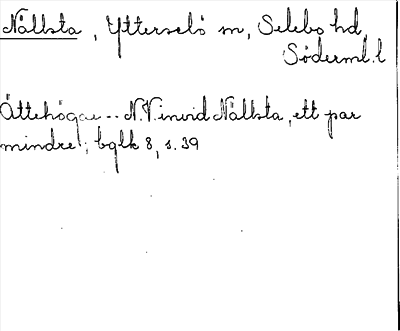 Nällsta, Ytterselö sn, Selebo hd
Söderml. l
Ättehögar -- N.V. invid Nällsta, ett par
mindre; bglk 8, s. 39